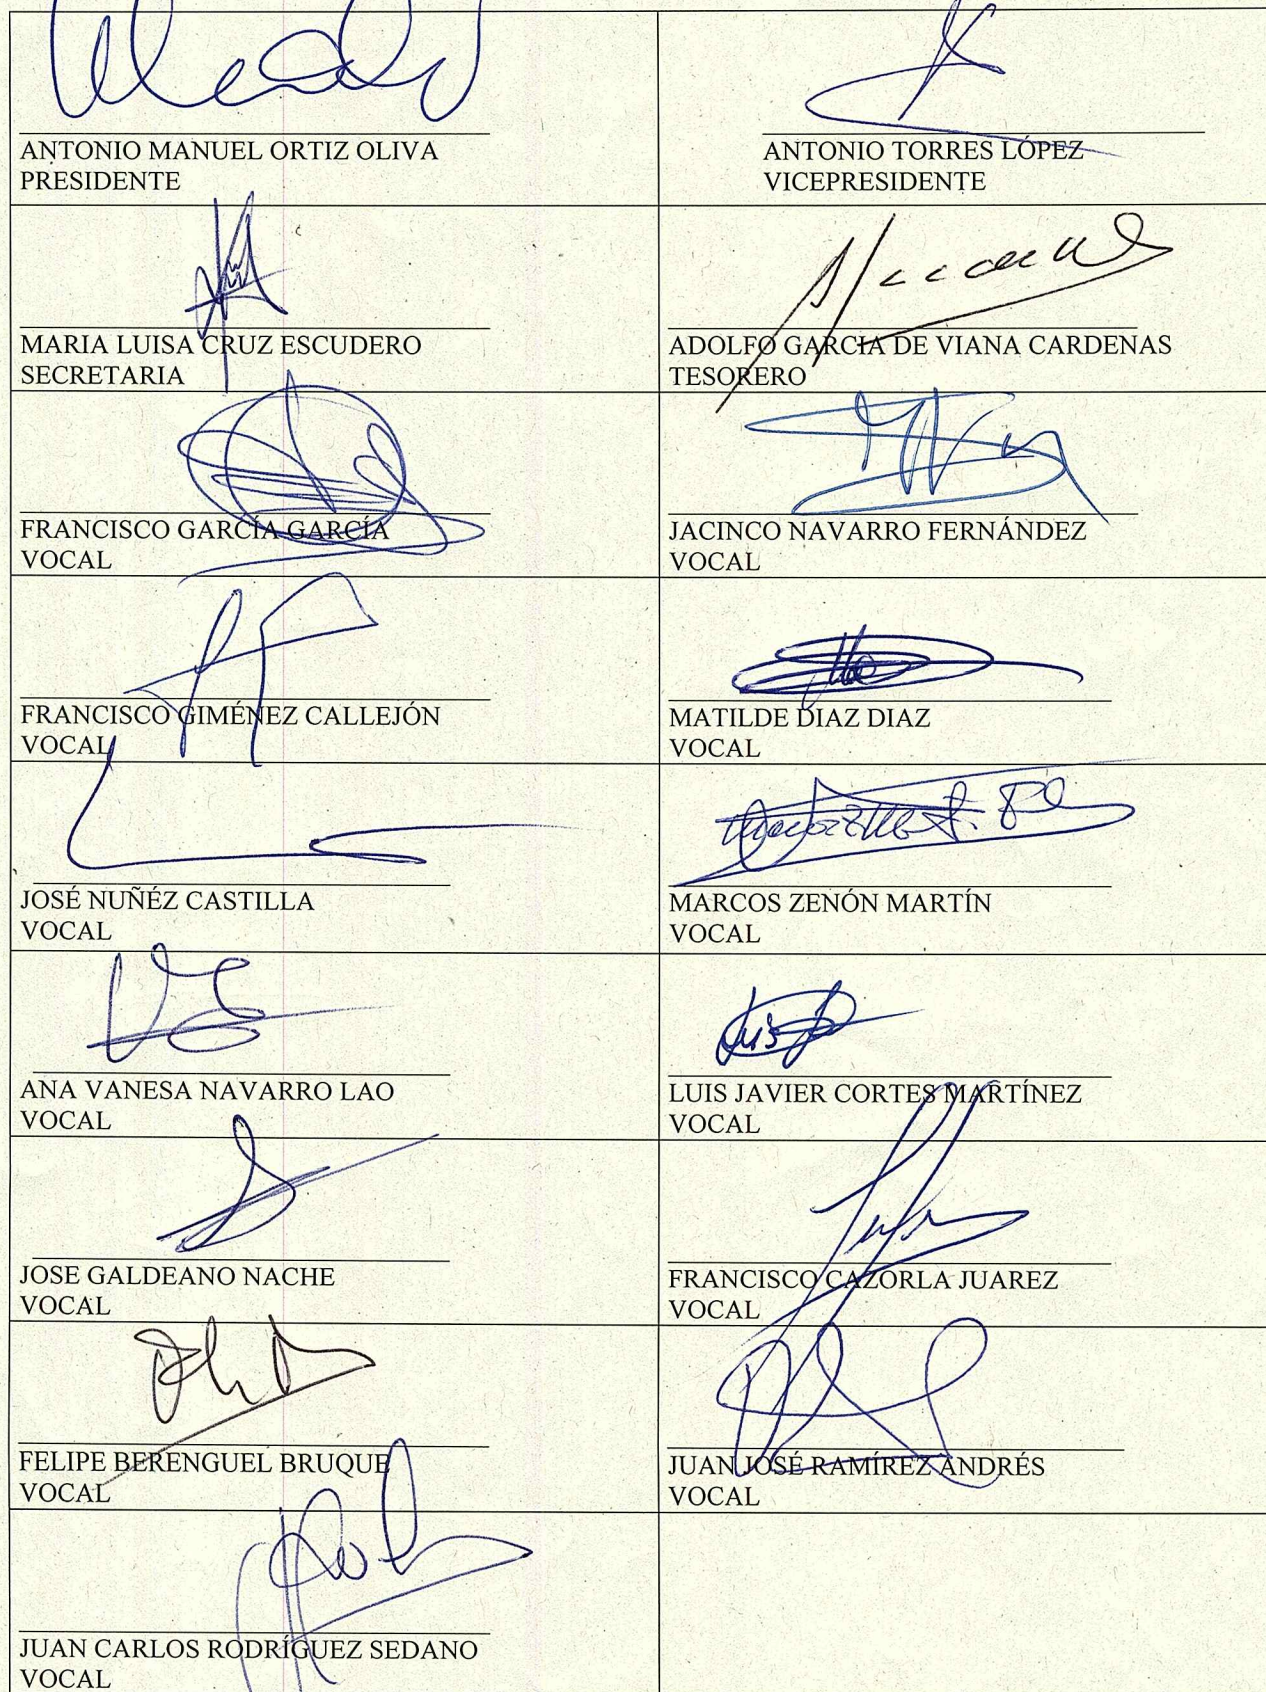 ANTONIO MANUEL ORTIZ OLIVA
PRESIDENTE
ANTONIO TORRES LÓPEZ
VICEPRESIDENTE
MARIA LUISA CRUZ ESCUDERO
SECRETARIA
ADOLFO GARCIA DE VIANA CARDENAS
TESORERO
FRANCISCO GARCÍA GARCÍA
VOCAL
JACINCO NAVARRO FERNÁNDEZ
VOCAL
FRANCISCO GIMÉNEZ CALLEJÓN
VOCAL
MATILDE DIAZ DIAZ
VOCAL
JOSÉ NUÑÉZ CASTILLA
VOCAL
MARCOS ZENÓN MARTÍN
VOCAL
ANA VANESA NAVARRO LAO
VOCAL
Luis
LUIS JAVIER CORTES MARTÍNEZ
VOCAL
JOSE GALDEANO NACHE
VOCAL
FRANCISCO CAZORLA JUAREZ
VOCAL
FELIPE BERENGUEL BRUQUE
VOCAL
JUAN JOSÉ RAMÍREZ ANDRÉS
VOCAL
JUAN CARLOS RODRÍGUEZ SEDANO
VOCAL